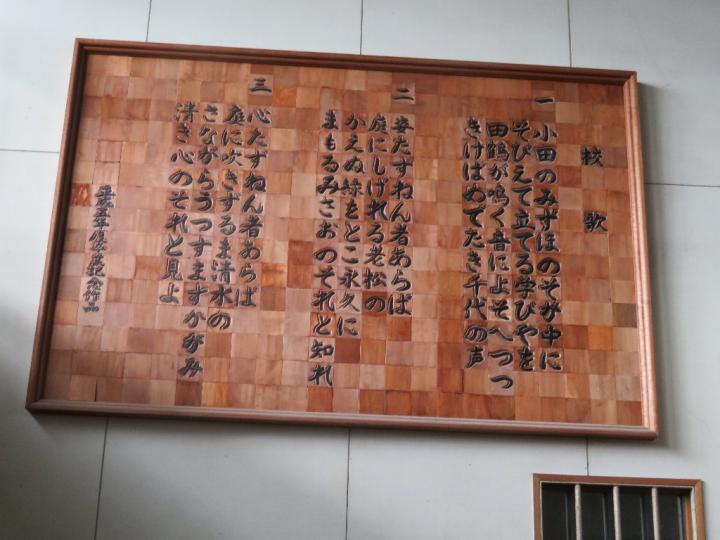 校歌
一 小田のみずほのそが中に
そびえて立てる学びやを
田鶴が鳴く音によそへつつ
きけばめでたき千代の声
二 姿たずねん者あらば
庭にしげれる老松の
かえぬ緑をとこ永久に
まもるみさおのそれと知れ
三 心たずねん者あらば
庭に吹きずるま清水の
さながらうつすますかがみ
清き心のそれと見よ
平成五年度卒業記念作品